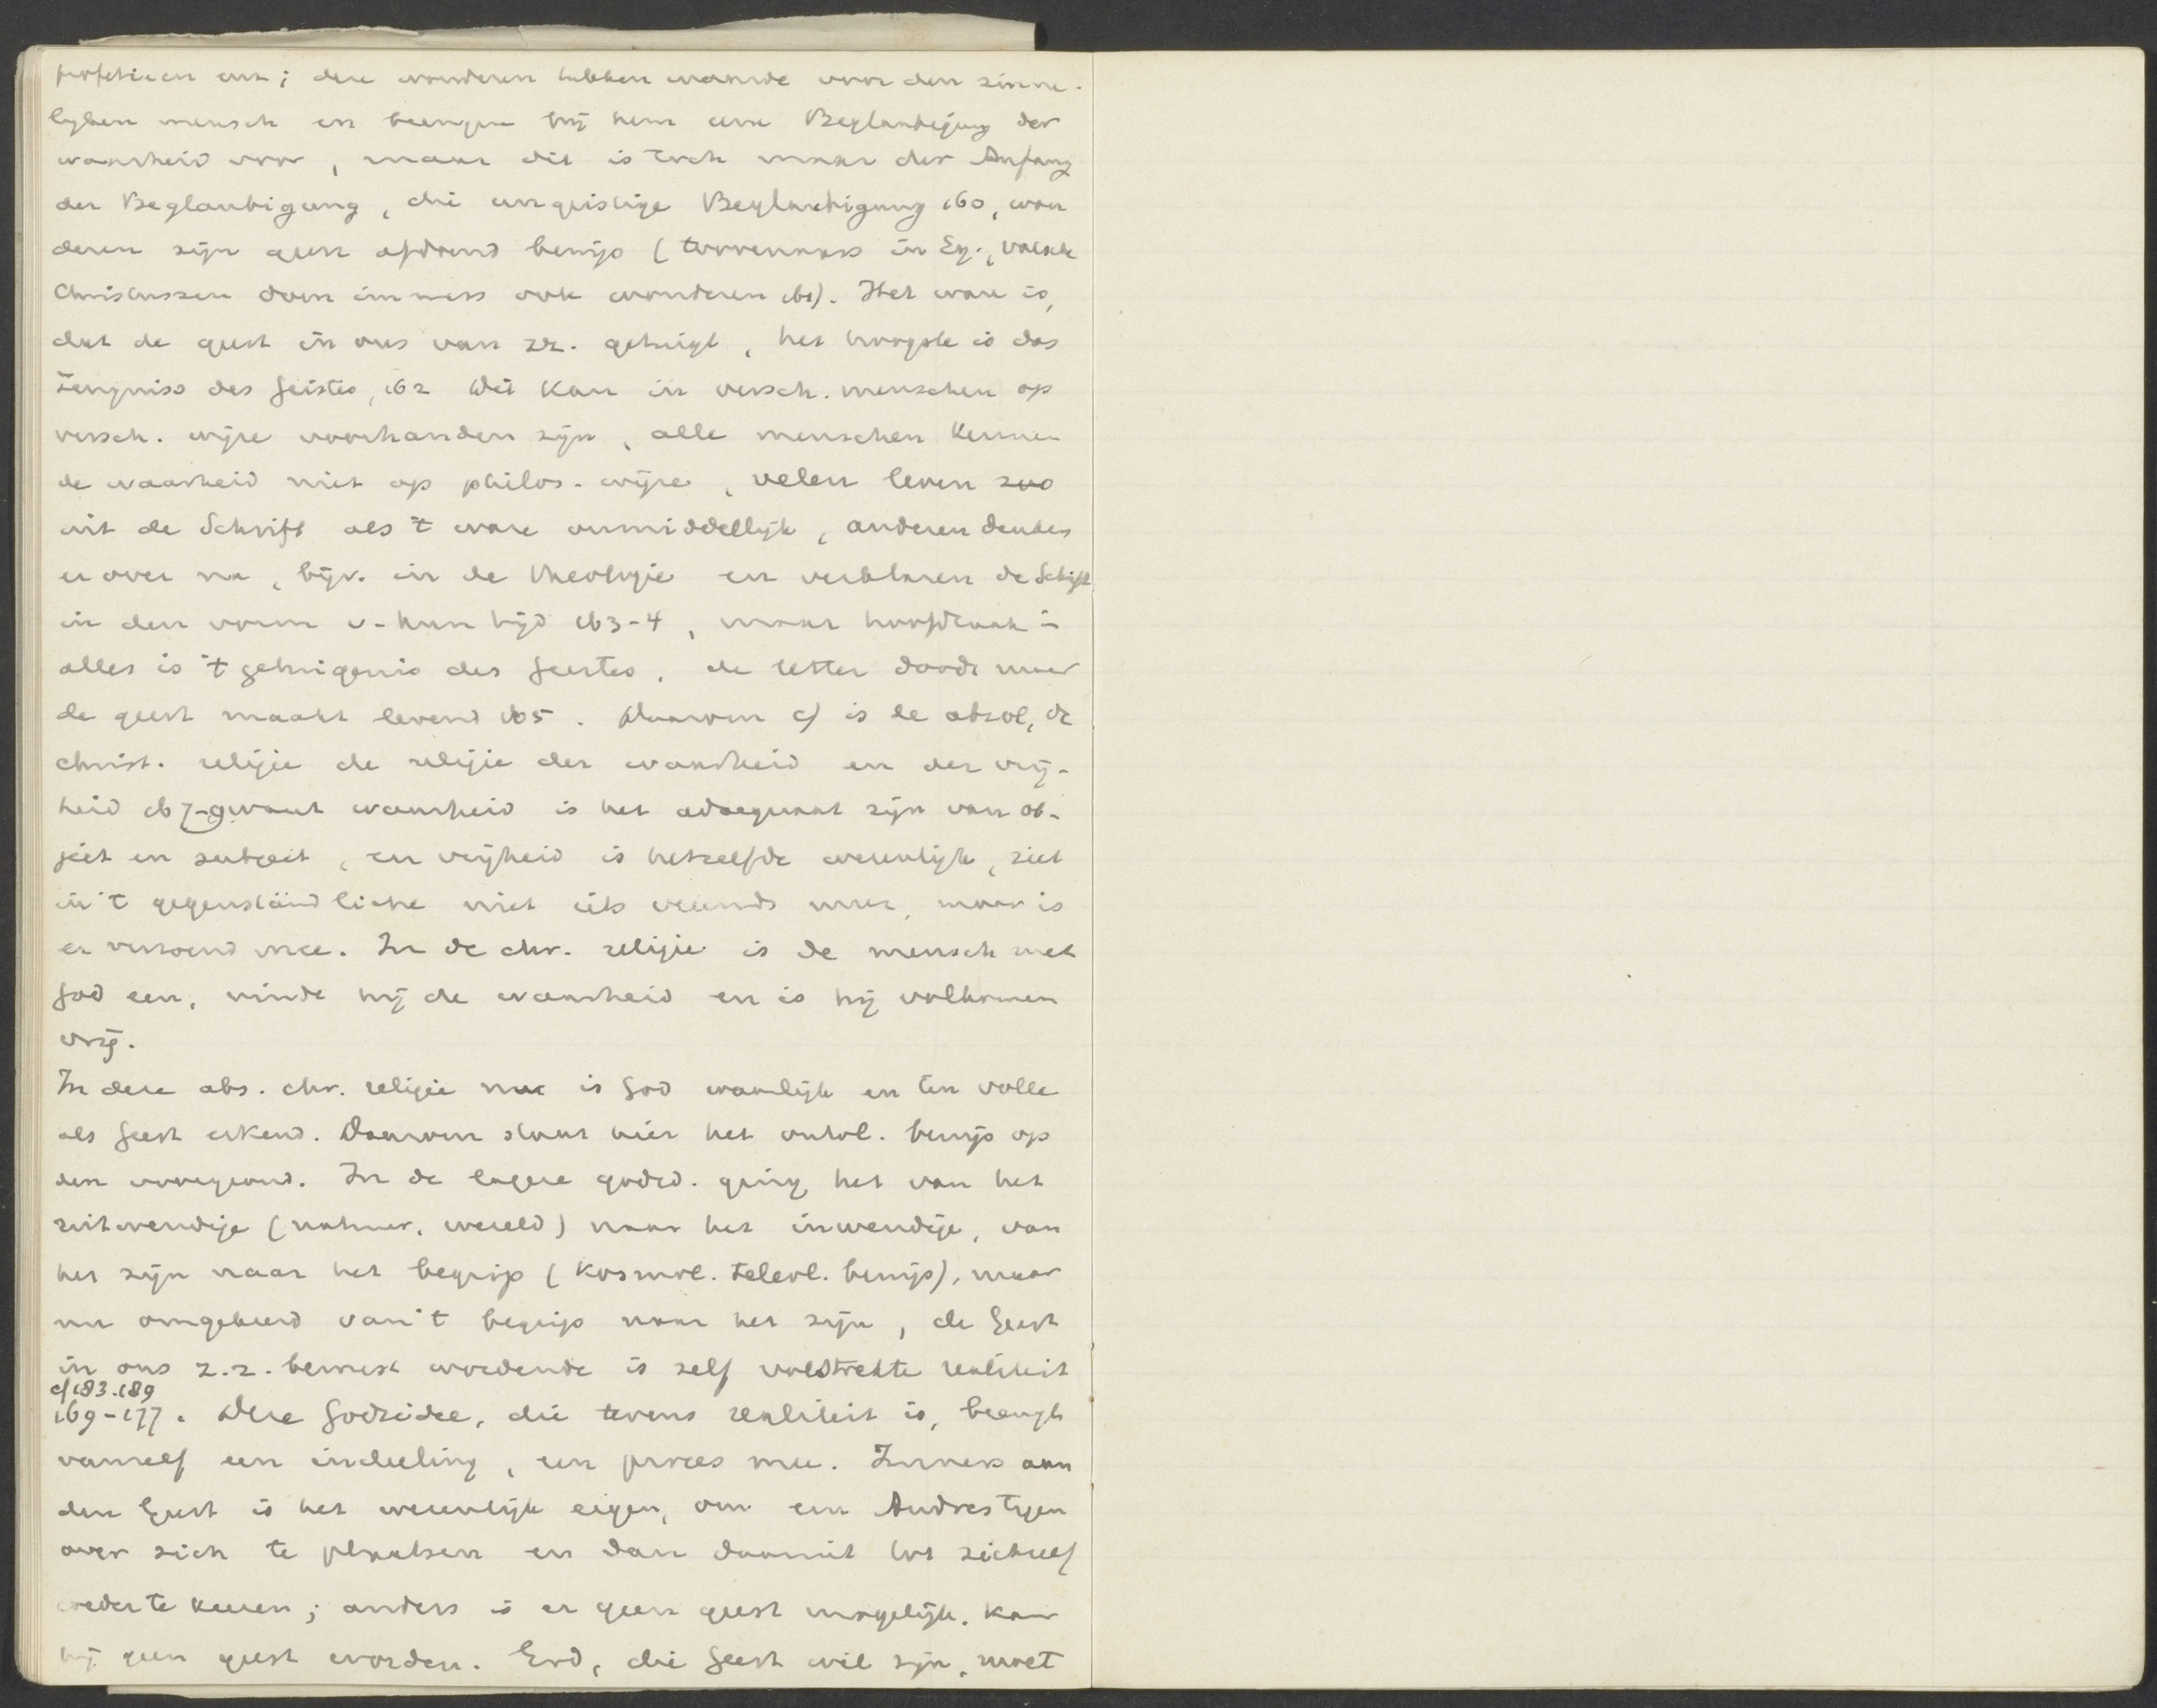 profetieen enz; deze wonderen hebben waarde voor den zinne-
lijken mensch en brengen bij hem eene Beglaubigung der
waarheid voor, maar dit is toch maar der Anfang
der Beglaubigung, die ungeistige Beglaubigung 160, won
deren zijn geen afdoend bewijs (toovenaars in Eg., valsche
Christussen doen immers ook wonderen ib). Het ware is,
dat de geest in ons van zz. getuigt, het hoogste is das
Zeugniss des Geistes, 162 Dit kan in versch. menschen op
versch. wijze voorhanden zijn, alle menschen kennen
de waarheid niet op philos. wijze, velen leven zoo
uit de Schrift als 't ware onmiddellijk, anderen denken
er over na, bijv. in de theologie en verklaren de Schrift
in den vorm v. hun tijd 163-4, maar hoofdzaak in
alles is 't getuigenis des Geestes, de letter doodt maar
de geest maakt levend 165. Daarom c) is de absol, de
christ. religie de religie der waarheid en der vrij-
heid 167-9 want waarheid is het adaequaat zijn van ob-
ject en subject, en vrijheid is hetzelfde wezenlijk, ziet
in 't gegenständliche niet iets vreemds meer, maar is
er verzoend mee. In de chr. religie is de mensch met
God een, vindt hij de waarheid en is hij volkomen
vrij.
In deze abs. chr. religie nu is God waarlijk en ten volle
als Geest erkend. Daarom staat hier het ontol. bewijs op
den voorgrond. In de lagere godsd. ging het van het
uitwendige (natuur, wereld) naar het inwendige, van
het zijn naar het begrip (kosmol. teleol. bewijs), maar
nu omgekeerd van 't begrip naar het zijn, de Geest
in ons z.z. bewust wordende is zelf volstrekte realiteit
cf 183.189
169-177. Deze Godsidee, die tevens realiteit is, brengt
vanzelf een indeeling, een proces mee. Immers aan
den Geest is het wezenlijk eigen, om een Andres tegen
over zich te plaatsen en dan daaruit tot zichzelf
weder te keeren; anders is er geen geest mogelijk. kan
hij geen geest worden. God, die Geest wil zijn, moet